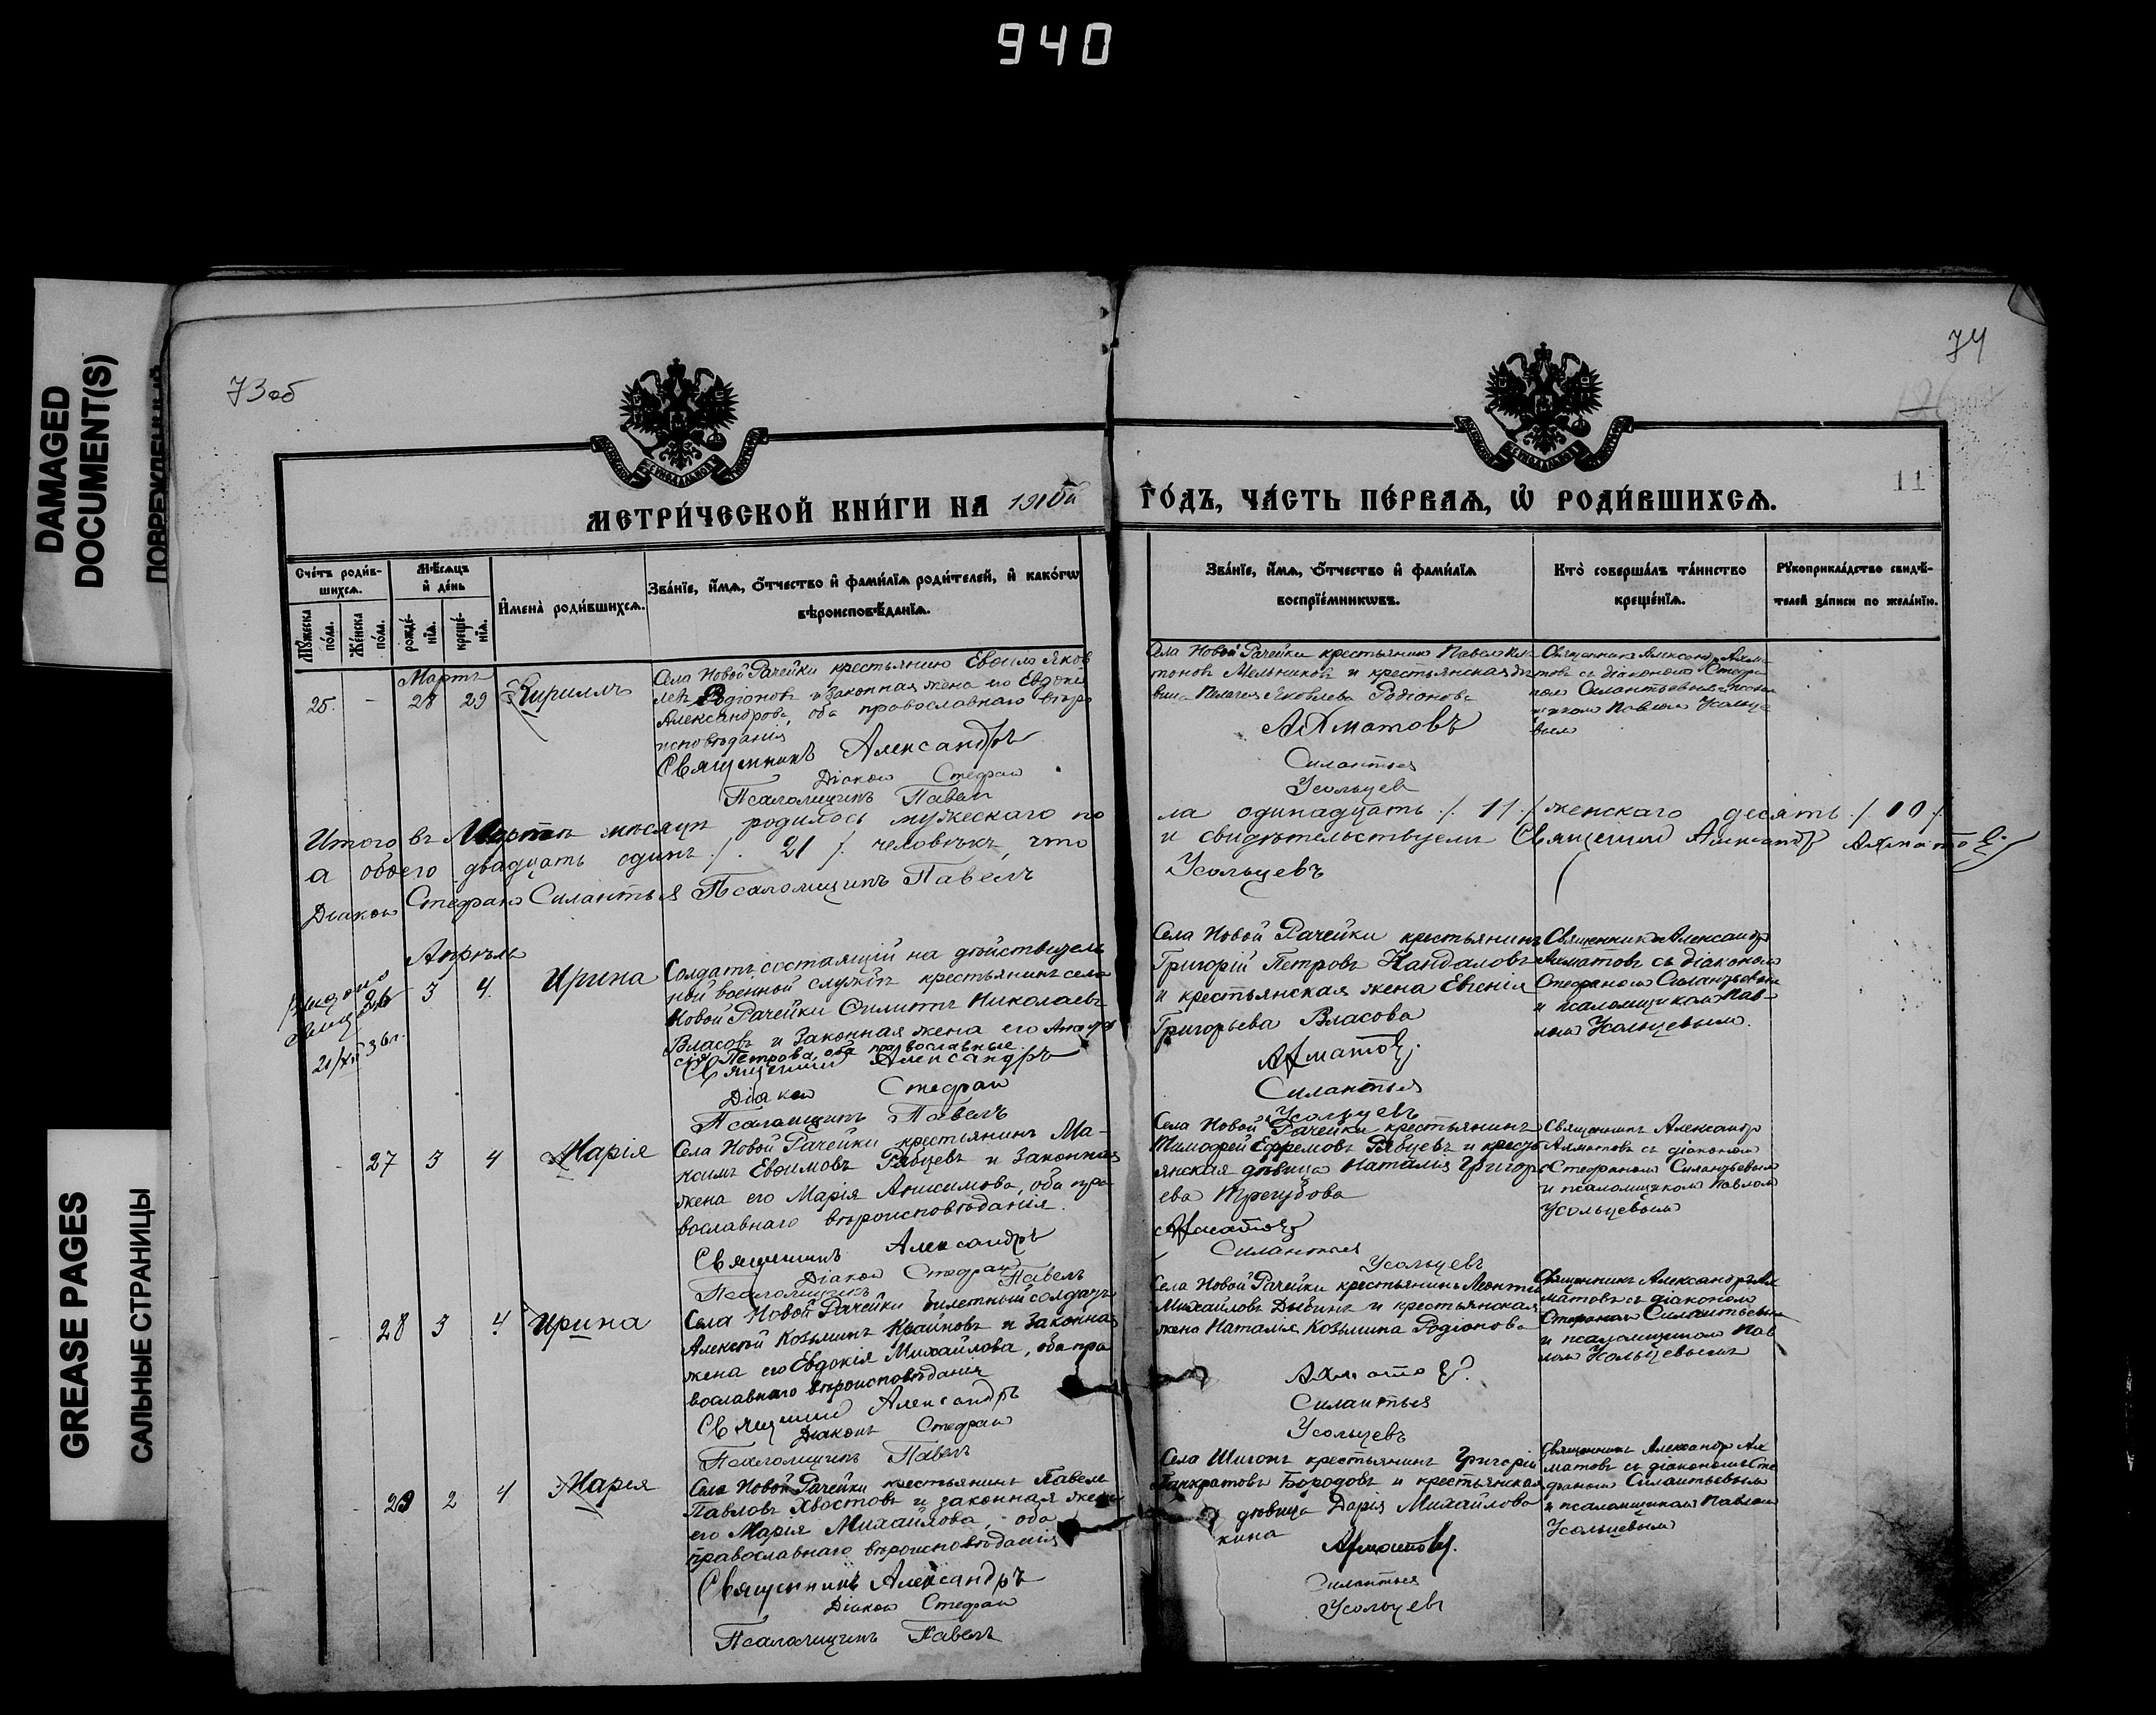 940
DAMAGED
DOCUMENT(S)
GREASE PAGES
САЛЬНЫЕ СТРАНИЦЫ
73об
74
11
МЕТРИ́ЧЕСКОЙ КНИ́ГИ НА 1910й ГО́ДЪ, ЧА́СТЬ ПЕ́РВАѦ, Ѡ҆ РОДИ́ВШИХСѦ.
Сче́тъ роди́в-
шихсѧ.
Мꙋ́жеска по́ла.
Же́нска по́ла.
Мѣ́сѧцъ
и҆ де́нь
рожде́-
нїѧ.
креще́-
нїѧ.
И҆мена̀ роди́вшихсѧ.
Зва́нїе, и҆́мѧ, ѻ҆́тчество и҆ фами́лїѧ роди́телей, и҆ како́гѡ
вѣроисповѣ́данїѧ.
Зва́нїе, и҆́мѧ, ѻ҆́тчество и҆ фами́лїѧ
воспрїе́мникѡвъ.
Кто̀ соверша́лъ та́инство
креще́нїѧ.
Рꙋкоприкла́дство свидѣ́-
телей за́писи по жела́нїю.
Мартъ
25. - 28 29 Кириллъ
Села Новой Рачейки
Родіоновъ и законная жена его
Александрова, оба православнаго вѣро
исповѣданія
Священникъ Александръ
Діаконъ Стефан
Псаломщикъ Павел
Села Новой Рачейки крестьянинъ
Мельниковъ и крестьянская дѣ
вица Пелагея Яковлева Родіонова
Ахматовъ
Силантьев
Усольцев
Священникъ Александръ Ахма
товъ съ діакономъ Стефа
номъ Силантьевымъ и псалом
щикомъ Павломъ Усольце
вымъ
Итого въ Мартѣ мѣсяцѣ родилось мужескаго по
ла одинадцать /. 11 / женскаго десять /. 10 /.
а обоего двадцать одинъ /. 21 /. человѣкъ, что
и свидѣтельствуемъ Священник Александр Ахматов
Діакон Стефан Силантьев Псаломщикъ Павелъ
Усольцевъ
Апрѣль
26 3 4. Ирина
21/XII 36 г.
Солдатъ состоящій на дѣйствитель
ной военной службѣ крестьянинъ села
Новой Рачейки Филиппъ Николаевъ
Власовъ и законная жена его Анаста
сія Петрова, оба православные.
Священник Александръ
Діакон Стефан
Псаломщикъ Павелъ
Села Новой Рачейки крестьянинъ
Григорій Петровъ Кандаловъ
и крестьянская жена Евгенія
Григорьева Власова
Ахматов
Силантьев
Усольцевъ
Священникъ Александр
Ахматовъ съ діакономъ
Стефаномъ Силантьевымъ
и псаломщикомъ Пав-
ломъ Усольцевымъ.
- 27 3 4 Марія
Села Новой Рачейки крестьянинъ Ма-
ксимъ Евфимовъ Рябцевъ и законная
жена его Марія Анисимова, оба пра
вославнаго вѣроисповѣданія.
Священникъ Александръ
Діакон Стефан
Псаломщикъ Павелъ
Села Новой Рачейки крестьянинъ
Тимофей Ефремовъ Рябцевъ и кресть
янская дѣвица Наталія Григорь
ева Трегубова
Ахматов
Силантьев
Усольцевъ
Священникъ Александр
Ахматовъ съ діакономъ
Стефаномъ Силантьевымъ
и псаломщикомъ Павломъ
Усольцевымъ
- 28 3 4 Ирина
Села Новой Рачейки билетный солдатъ
Алексѣй Козьминъ Крайновъ и законная
жена его Евдокія Михайлова, оба пра
вославнаго вѣроисповѣданія
Священник Александръ
Діаконъ Стефан
Псаломщикъ Павелъ
Села Новой Рачейки крестьянинъ Леонтій
Михайловъ Дыбинъ и крестьянская
жена Наталія Козьмина Родіонова
Ахматов
Силантьев
Усольцевъ
Священникъ Александръ Ах
матовъ съ діакономъ
Стефаномъ Силантьевымъ
и псаломщикомъ Пав
ломъ Усольцевымъ
- 29 2 4 Марія
Села Новой Рачейки крестьянинъ Павелъ
Павловъ Хвостовъ и законная жена
его Марія Михайлова, оба
православнаго вѣроисповѣданія
Священникъ Александръ
Діакон Стефан
Псаломщикъ Павелъ
Села Шигонъ крестьянинъ Григорій
Панкратовъ Бородовъ и крестьянская
дѣвица Дарія Михайлова
кина
Ахматов.
Силантьев
Усольцевъ
Священникъ Александръ Ах
матовъ съ діакономъ Сте
фаномъ Силантьевымъ
и псаломщикомъ Павломъ
Усольцевымъ